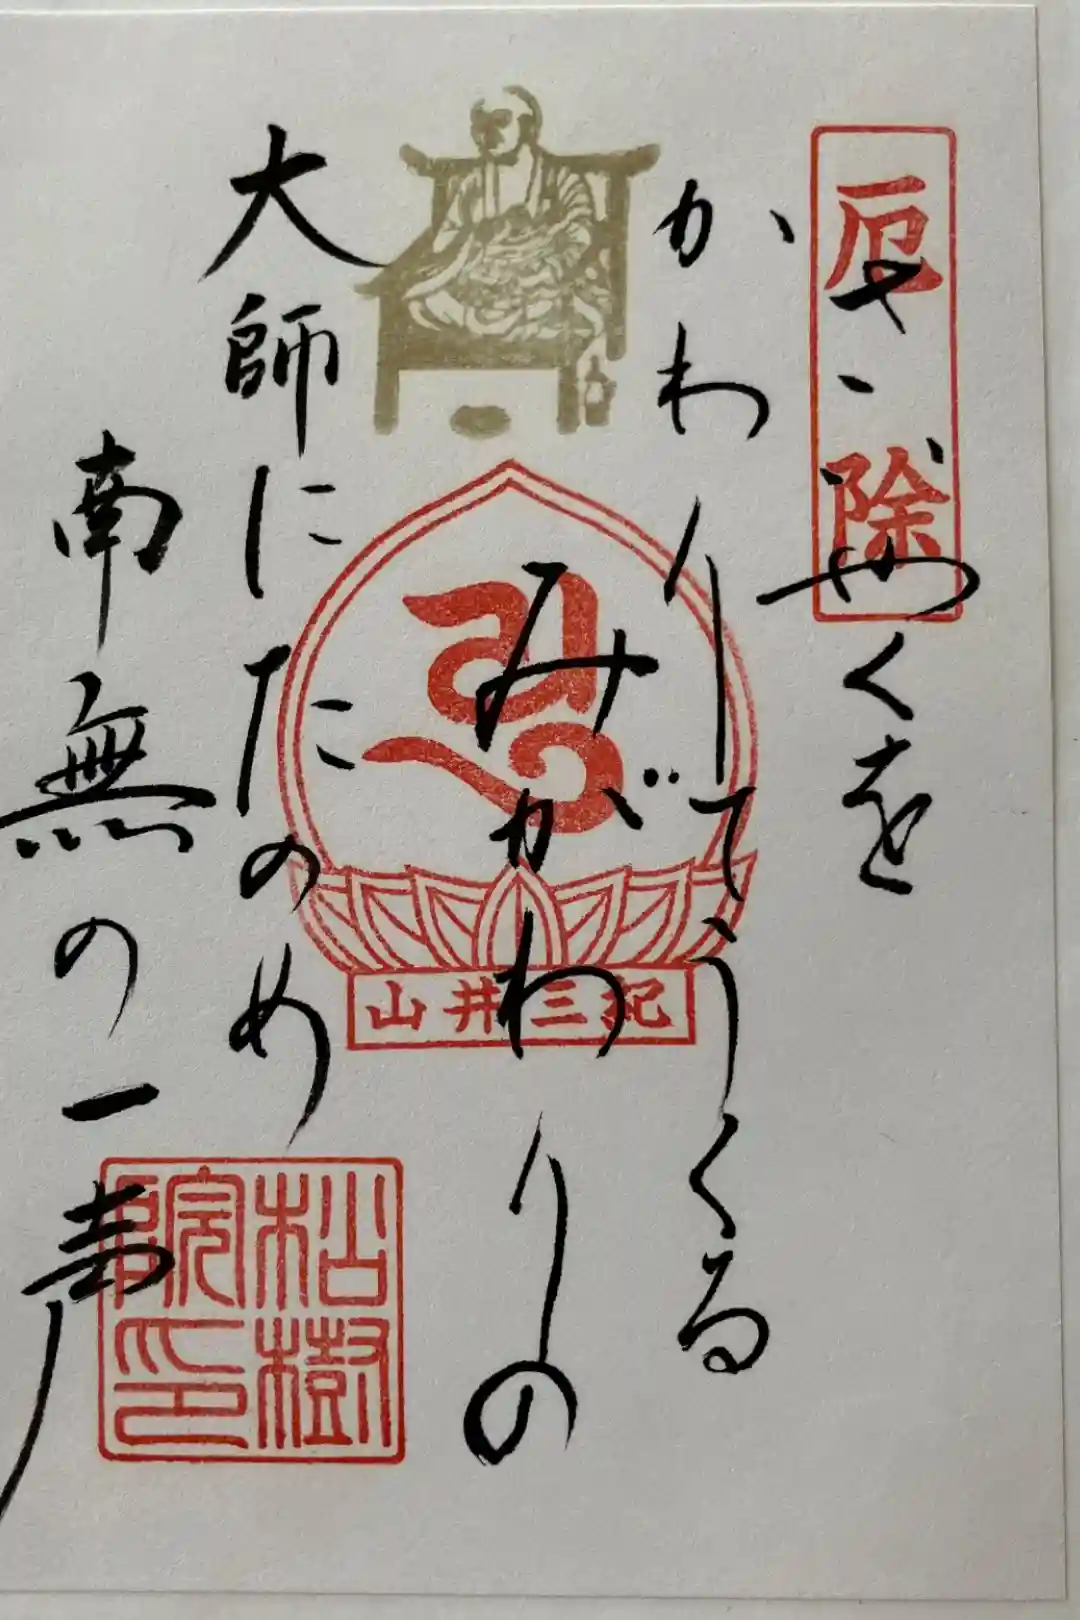 厄除
さいやくを
かわりてうくる
みがわりの
大師にたのめ
南無の一声
紀三井山
松樹
院印